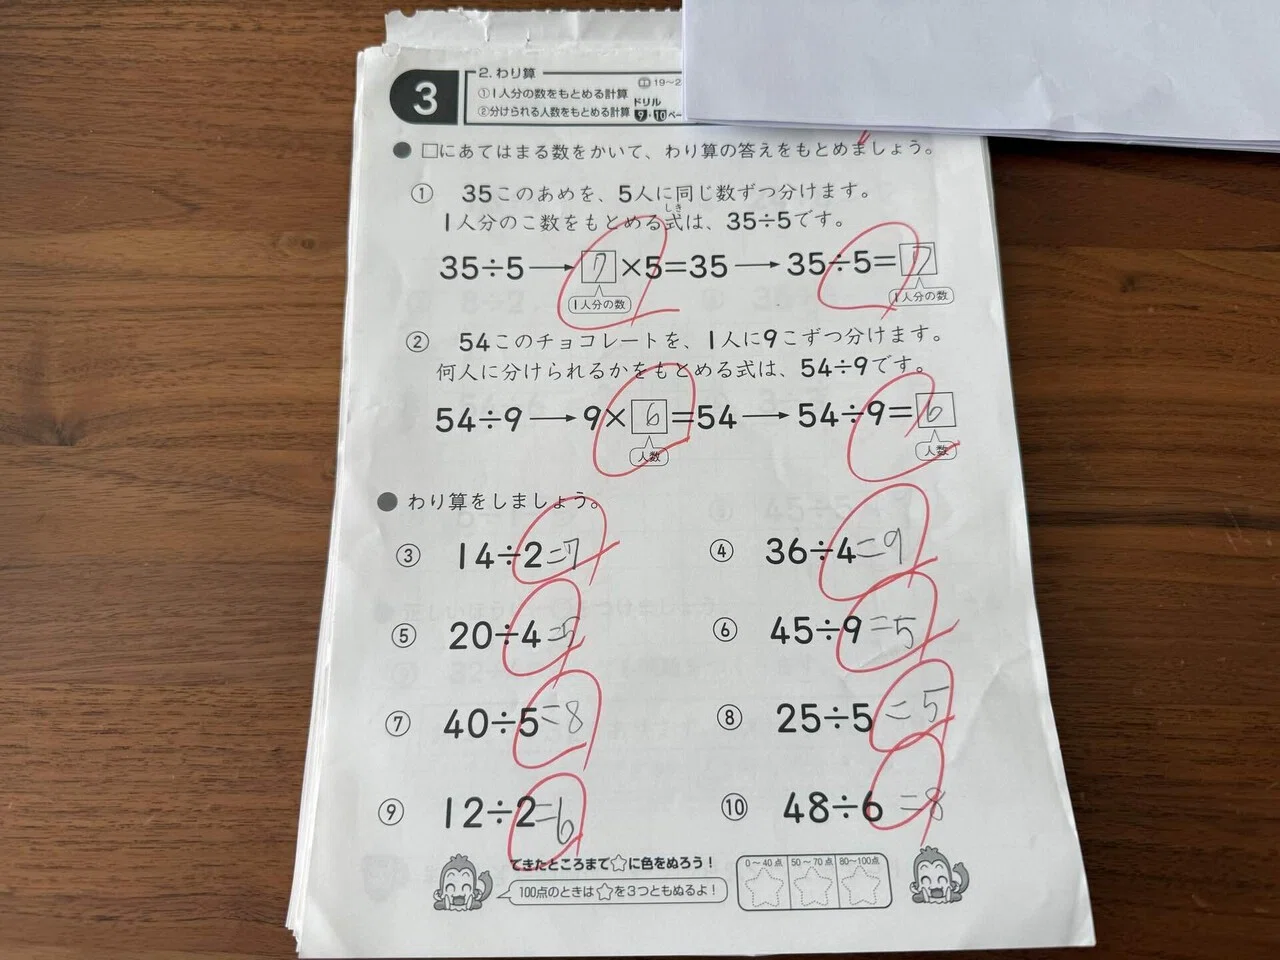 3
2. わり算
①1人分の数をもとめる計算
②分けられる人数をもとめる計算
19〜2
ドリル
9・10ペー
●□にあてはまる数をかいて、わり算の答えをもとめましょう。
① 35このあめを、5人に同じ数ずつ分けます。
1人分のこ数をもとめる式は、35÷5です。
しき
35÷5→7×5=35→35÷5=7
1人分の数 1人分の数
② 54このチョコレートを、1人に9こずつ分けます。
何人に分けられるかをもとめる式は、54÷9です。
54÷9→9×6=54→54÷9=6
人数 人数
●わり算をしましょう。
③ 14÷2=7 ④ 36÷4=9
⑤ 20÷4=5 ⑥ 45÷9=5
⑦ 40÷5=8 ⑧ 25÷5=5
⑨ 12÷2=6 ⑩ 48÷6=8
できたところまで☆に色をぬろう!
100点のときは☆を3つともぬるよ!
0〜40点 50〜70点 80〜100点